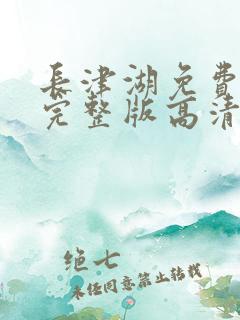 長津湖免費
完整版高清
绝七
未经同意禁止转载